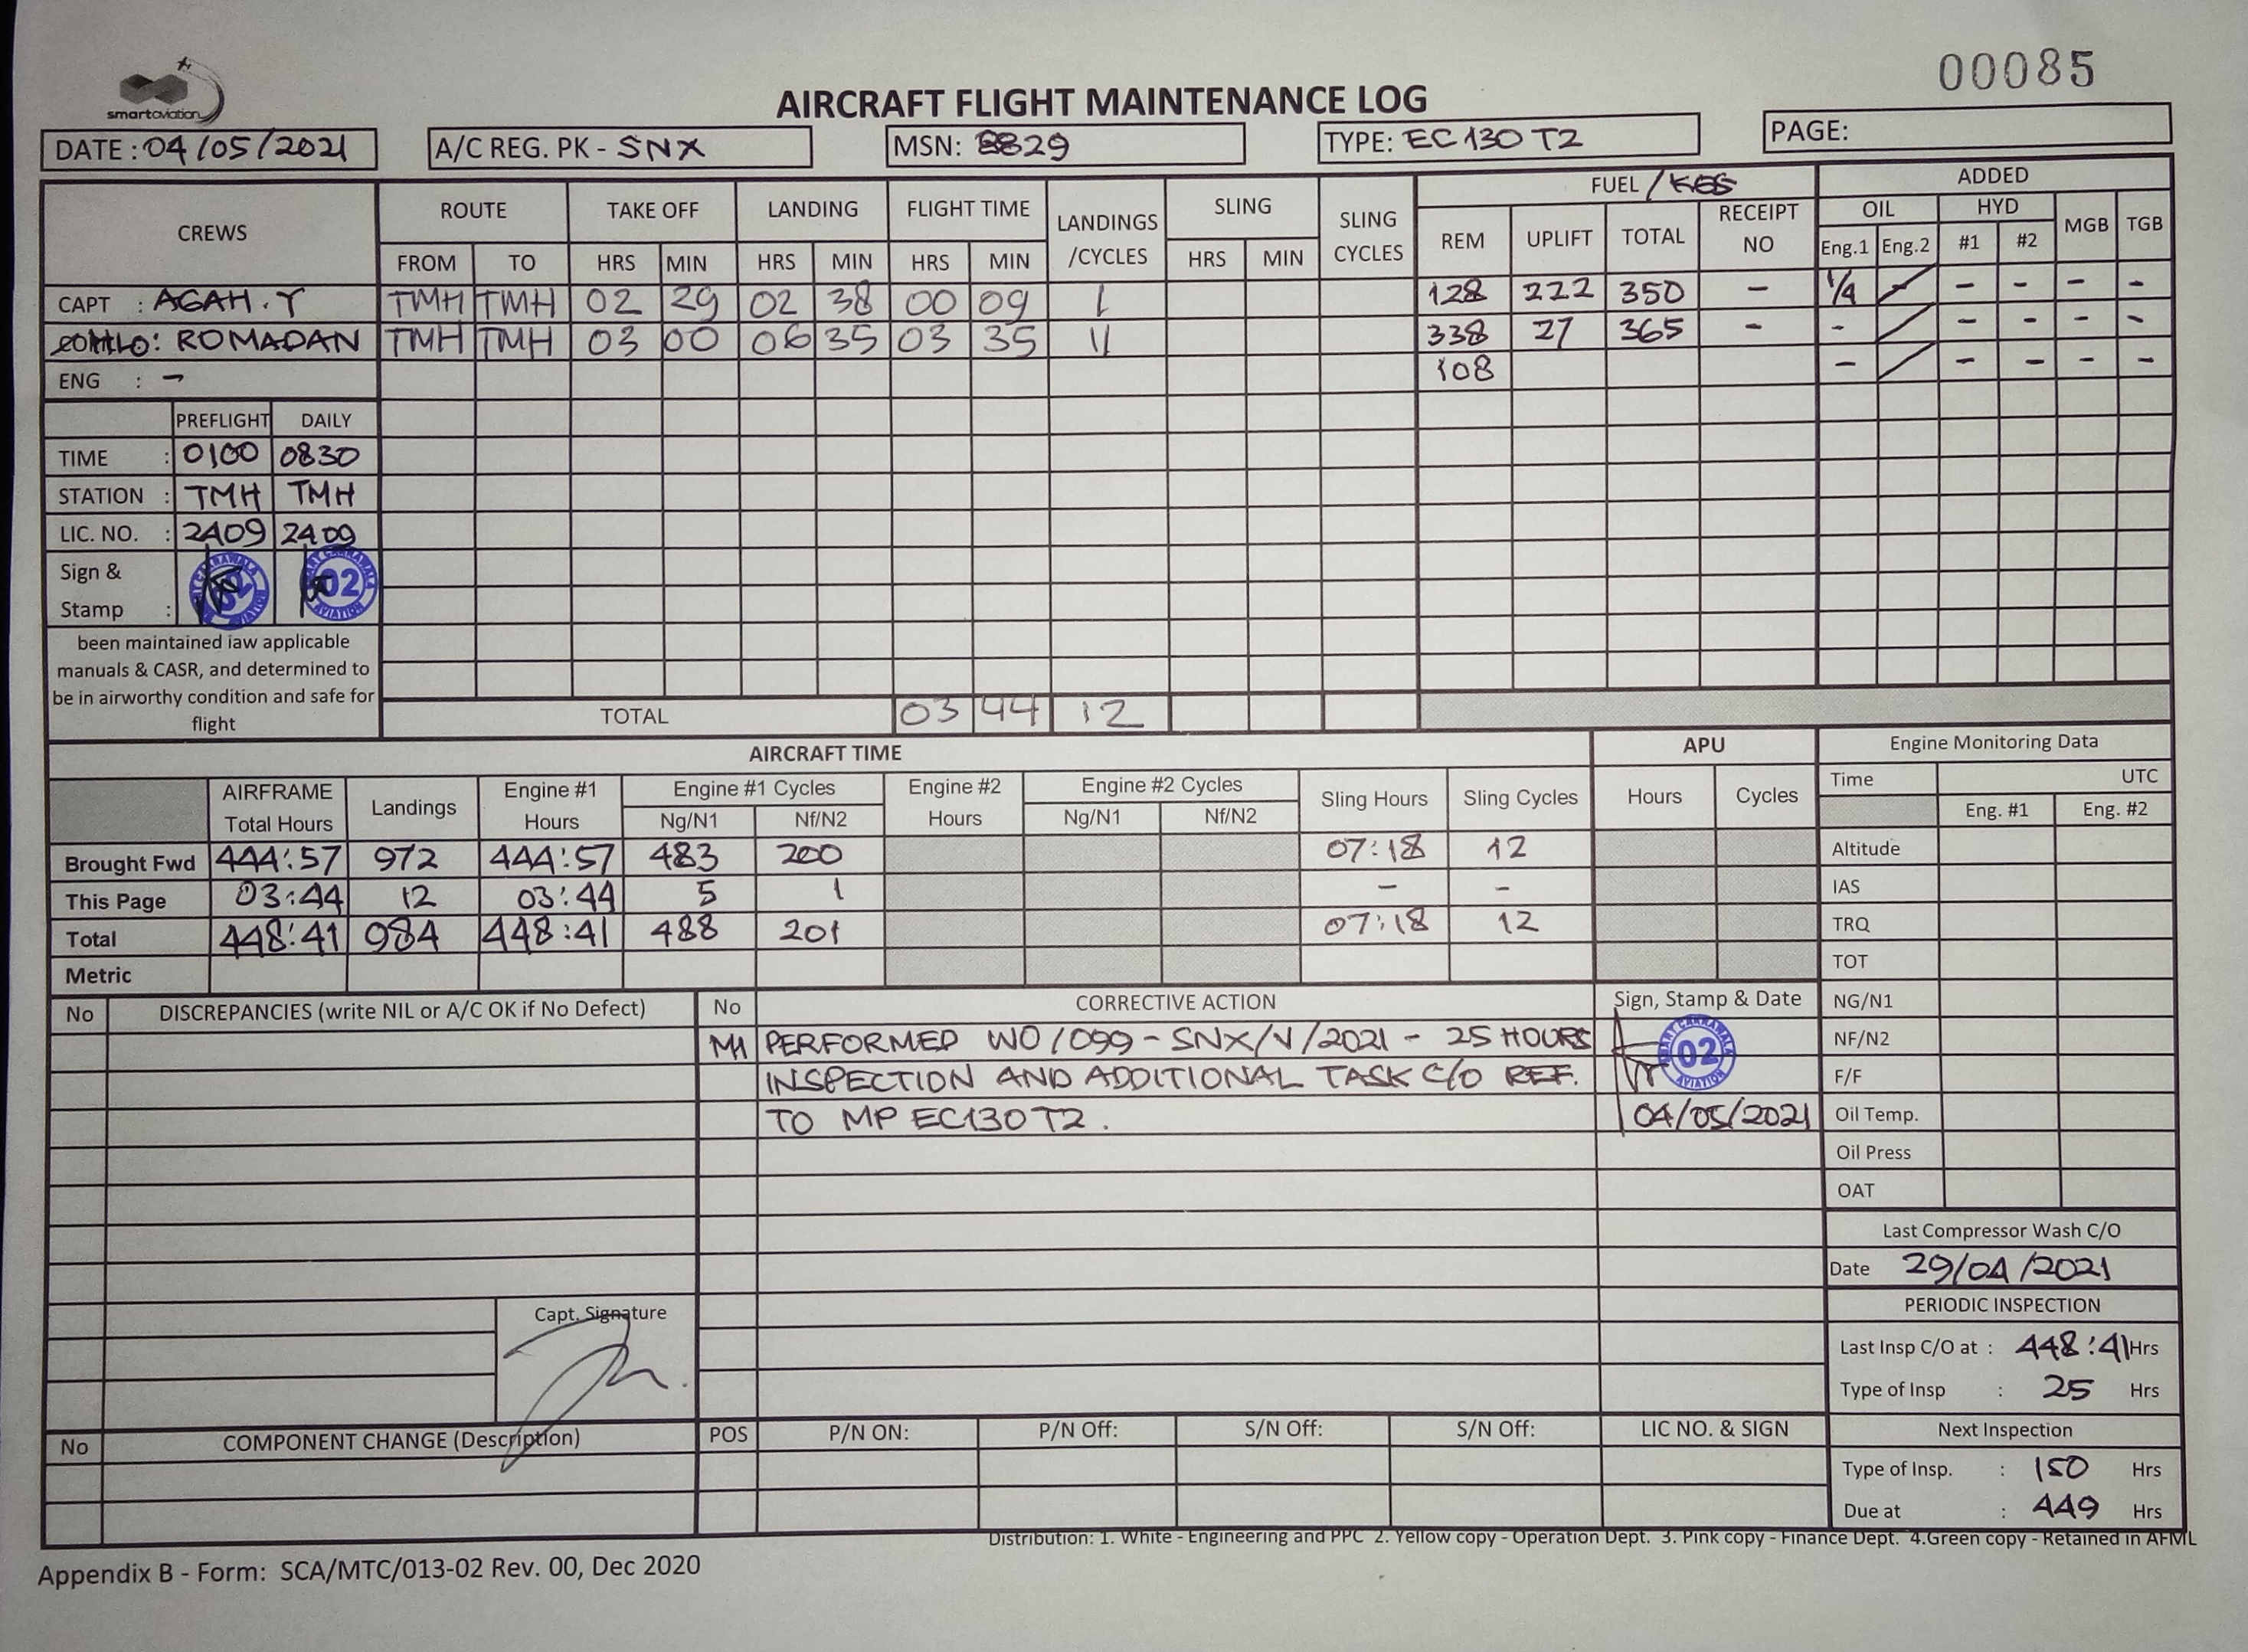 00085
smartaviation
AIRCRAFT FLIGHT MAINTENANCE LOG
DATE : 04/05/2021 A/C REG. PK - SNX MSN: 8829 TYPE: EC 130 T2 PAGE:
CREWS ROUTE TAKE OFF LANDING FLIGHT TIME LANDINGS /CYCLES SLING SLING CYCLES FUEL / KGS ADDED
REM UPLIFT TOTAL RECEIPT NO OIL HYD MGB TGB
FROM TO HRS MIN HRS MIN HRS MIN HRS MIN Eng.1 Eng.2 #1 #2
CAPT : AGAH.Y TMH TMH 02 29 02 38 00 09 1 128 222 350 - 1/4 - - - -
: ROMADAN TMH TMH 03 00 06 35 03 35 11 338 27 365 - - - - - -
ENG : - 108 - - - - -
PREFLIGHT DAILY
TIME : 0100 0830
STATION : TMH TMH
LIC. NO. : 2409 2409
Sign &
Stamp : 02 AVIATION 02 AVIATION
been maintained iaw applicable
manuals & CASR, and determined to
be in airworthy condition and safe for
flight
TOTAL 03 44 12
AIRCRAFT TIME APU Engine Monitoring Data
AIRFRAME Total Hours Landings Engine #1 Hours Engine #1 Cycles Engine #2 Hours Engine #2 Cycles Sling Hours Sling Cycles Hours Cycles Time UTC
Ng/N1 Nf/N2 Ng/N1 Nf/N2 Eng. #1 Eng. #2
Brought Fwd 444:57 972 444:57 483 200 07:18 12 Altitude
This Page 03:44 12 03:44 5 1 - - IAS
Total 448:41 984 448:41 488 201 07:18 12 TRQ
Metric TOT
No DISCREPANCIES (write NIL or A/C OK if No Defect) No CORRECTIVE ACTION Sign, Stamp & Date NG/N1
M1 PERFORMED WO/099-SNX/V/2021 - 25 HOURS 02 AVIATION NF/N2
INSPECTION AND ADDITIONAL TASK C/O REF. F/F
TO MP EC130T2. 04/05/2021 Oil Temp.
Oil Press
OAT
Last Compressor Wash C/O
Date 29/04/2021
Capt. Signature PERIODIC INSPECTION
Last Insp C/O at : 448:41 Hrs
Type of Insp : 25 Hrs
No COMPONENT CHANGE (Description) POS P/N ON: P/N Off: S/N Off: S/N Off: LIC NO. & SIGN Next Inspection
Type of Insp. : 150 Hrs
Due at : 449 Hrs
Distribution: 1. White - Engineering and PPC 2. Yellow copy - Operation Dept. 3. Pink copy - Finance Dept. 4.Green copy - Retained in AFML
Appendix B - Form: SCA/MTC/013-02 Rev. 00, Dec 2020